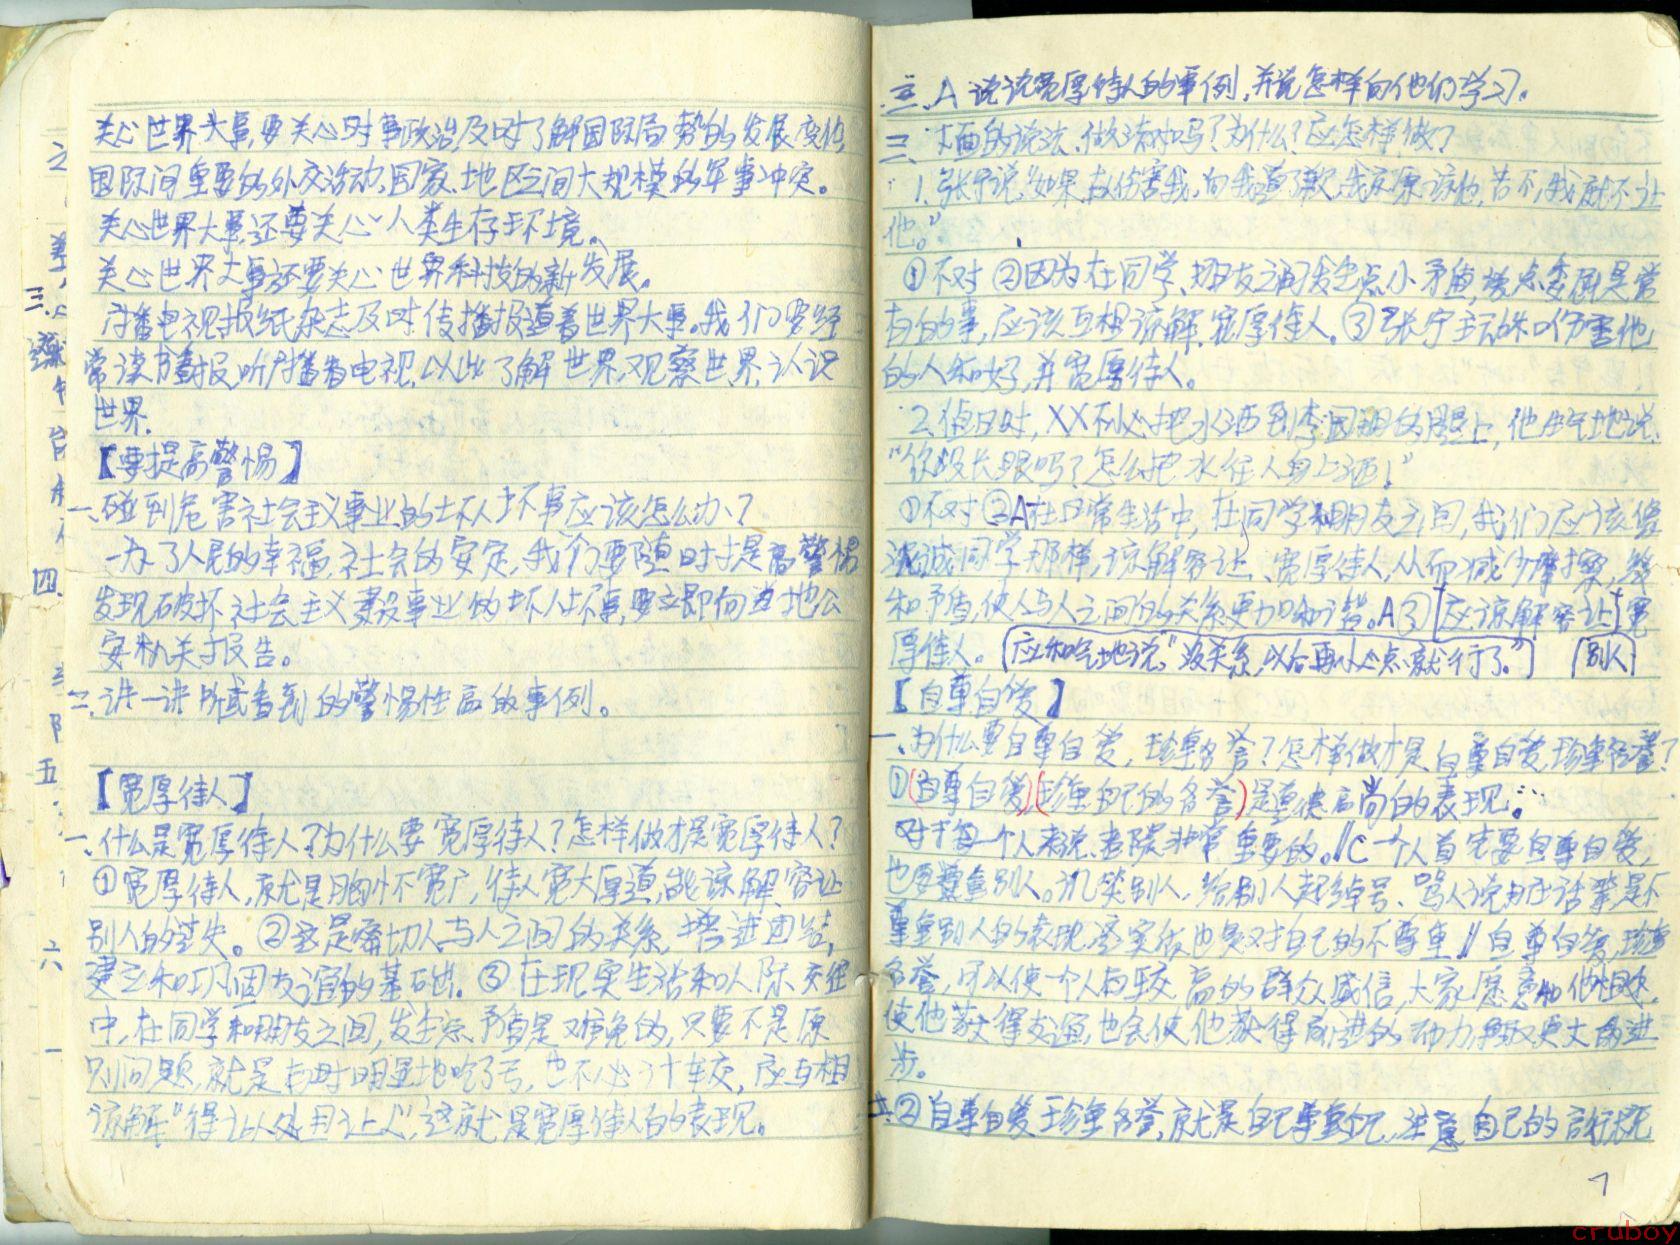 关心世界大事,要关心时事政治,及时了解国际局势的发展变化,
国际间重要的外交活动,国家、地区之间大规模的军事冲突。
关心世界大事,还要关心人类生存环境。
关心世界大事还要关心世界科技的新发展。
广播电视报纸杂志及时传播报道着世界大事。我们要经
常读书看报,听广播看电视,以此了解世界,观察世界,认识
世界.
【要提高警惕】
一、碰到危害社会主义事业的坏人坏事应该怎么办?
为了人民的幸福,社会的安定,我们要随时提高警惕
发现破坏社会主义建设事业的坏人坏事,要立即向当地公
安机关报告。
二、讲一讲听或看到的警惕性高的事例。
【宽厚待人】
一、什么是宽厚待人?为什么要宽厚待人?怎样做才是宽厚待人?
①宽厚待人,就是胸怀宽广,待人宽大厚道,能谅解、容让
别人的过失。②这是密切人与人之间的关系,增进团结,
建立和巩固友谊的基础。③在现实生活和人际交往
中,在同学和朋友之间,发生点矛盾是难免的,只要不是原
则问题,就是有时明显地吃了亏,也不必计较,应互相
谅解“得让人处且让人”,这就是宽厚待人的表现。
三、A 说说宽厚待人的事例,并说怎样向他们学习。
二、下面的说法、做法对吗?为什么?应怎样做?
1.张宁说“如果伤害我,向我道了歉,我原谅他,若不,我就不让
他。”
①不对 ②因为在同学、朋友之间发生点小矛盾,受点委屈是常
有的事,应该互相谅解、宽厚待人。③张宁主动和伤害他
的人和好,并宽厚待人。
2.值日时,XX不小心把水洒到李国明的身上,他生气地说:
“你没长眼吗?怎么把水往人身上洒!”
①不对②A在日常生活中,在同学和朋友之间,我们应该像
同学那样,谅解容让、宽厚待人,从而减少摩擦,
和矛盾,使人与人之间的关系更加和谐。A③应谅解容让宽
厚待人。应和气地说:“没关系,以后再小心点就行了。” 别人
【自尊自爱】
一、为什么要自尊自爱,珍重名誉?怎样做才是自尊自爱,珍重名誉?
①(自尊自爱)(珍重自己的名誉)是道德高尚的表现。
对于每一个人来说,都是非常重要的。//C一个人首先要自尊自爱,
也要尊重别人。讥笑别人,给别人起绰号、骂人说脏话都是不
尊重别人的表现,这实质也是对自己的不尊重//自尊自爱,珍重
名誉,可以使一个人有较高的群众威信,大家愿意和他相处,
使他获得友谊,也会使他获得前进的动力,争取更大的进
步。
②自尊自爱珍重名誉,就是自己尊重自己,注意自己的言行
7
cruboy